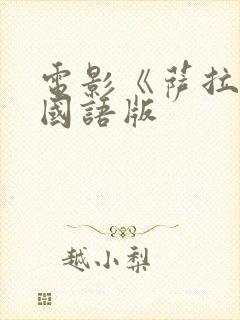 電影《萨拉
國語版
越小梨